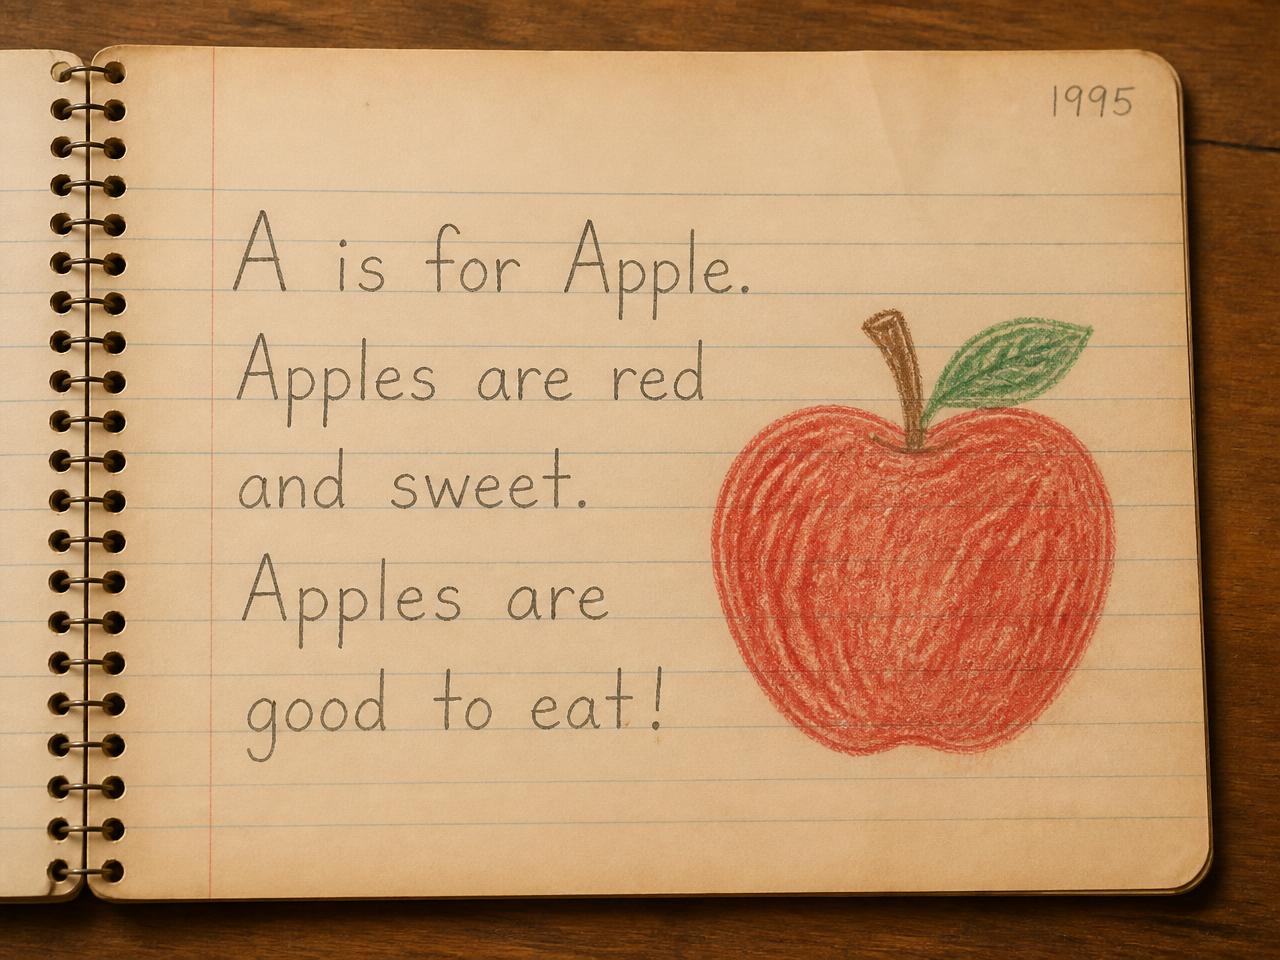 1995
A is for Apple.
Apples are red
and sweet.
Apples are
good to eat!